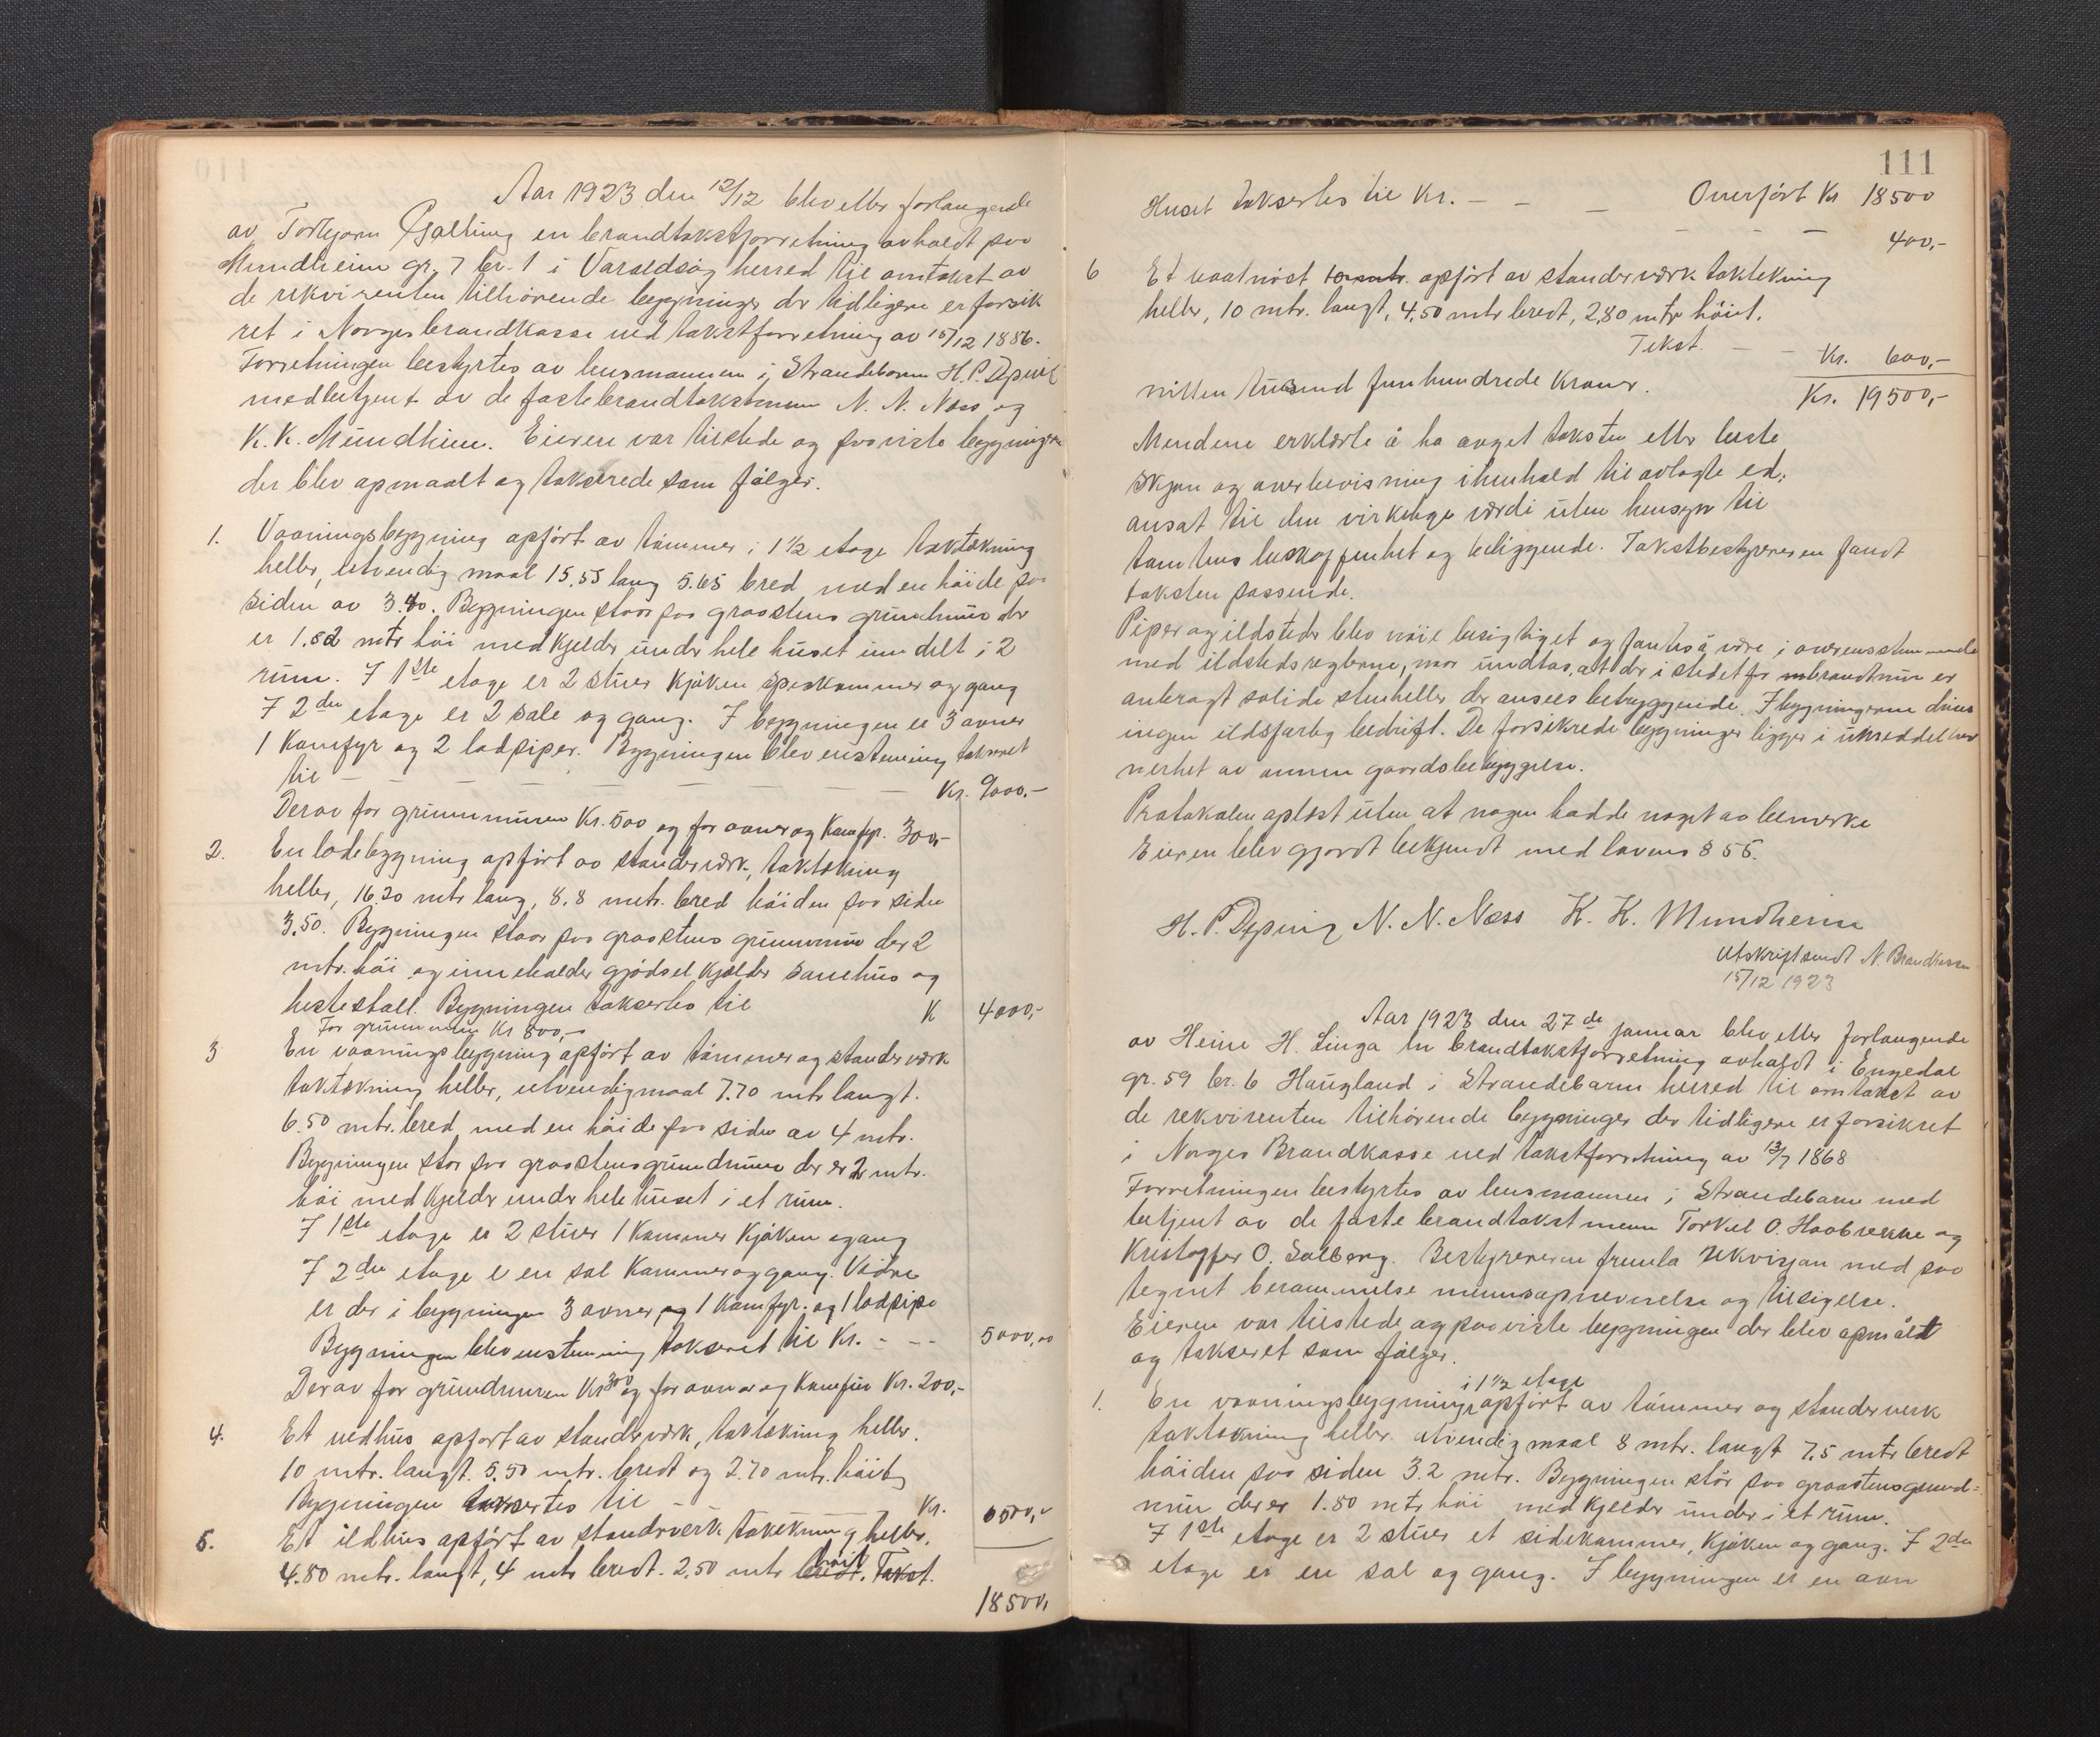 Aar 1923 den 12/12 blev efter forlangende
av Torbjørn Galtung en brandtakstforretning avholdt paa
Mundheim gr. 7 br. 1 i Varaldsøy herred til omtakst av
de rekvirenten tilhørende bygninger der tidligere er forsik
ret i Norges brandkasse ved takstforretning av 15/12 1886.
Forretningen bestyrtes av lensmannen i Strandebarm H. P. Dysvik
med betjent av de faste brandtakstmenn N. N. Næss og
K. K. Mundheim. Eieren var tilstede og paaviste bygningene
der blev opmaalt og takserede som følger.
1. Vaaningsbygning opført av tømmer i 1 1/2 etage taktækning
heller, utvendig maal 15,55 lang 5.65 bred med en høide paa
siden av 3.40. Bygningen staar paa graastens grundmur der
er 1.82 mtr høi med kjelder under hele huset inndelt i 2
rum. I 1ste etage er 2 stuer kjøken spiskammer og gang
I 2den etage er 2 sale og gang. I bygningen er 3 ovner
1 Komfyr og 2 lodpiper. Bygningen blev enstemmig taksert
til — — — — — — — Kr. 9000,-
Derav for grunnmuren Kr. 500 og for ovner og Komfyr. 300,-
2. En ladebygning opført av standerværk, taktækning
heller, 16.20 mtr lang, 8.8 mtr. bred høiden paa siden
3.50. Bygningen staar paa graastens grunnmur der 2
mtr. høi og inneholder gjødselkjælder sauehus og
hestestall. Bygningen taksertes til K 4000,-
For grunnmuren Kr 800,-
3 En vaaningsbygning opført av tømmer og standerværk
taktækning heller, utvendig maal 7.70 mtr langt.
6.50 mtr. bred med en høide paa siden av 4 mtr.
Bygningen står paa graastensgrundmur der er 2 mtr.
høi med kjelder under hele huset i et rum.
I 1ste etage er 2 stuer 1 Kammer Kjøken og gang
I 2den etage e en sal Kammer og gang. Videre
er der i bygningen 3 ovner og 1 Komfyr. og 1 lodpipe
Bygningen blev enstemmig taksert til Kr. - -- 5000,00
Derav for grundmuren Kr 300 og for ovner og Komfur Kr. 200,-
4. Et vedhus opført av standerværk, taktækning heller.
10 mtr. langt. 5.50 mtr. bredt og 2.70 mtr. høit
Bygningen taksertes til — — Kr. 500,-
5. Et ildhus opført av standerværk taktækning heller.
4.80 mtr. langt, 4 mtr bredt. 2.50 mtr høit. Takst.
18500,
111
Overført Kr 18500
Huset taksertes til Kr. — — — — — — 400,-
6 Et baatnøst opført av standerværk taktekning
heller, 10 mtr. langt, 4.50 mtr bredt, 2,80 mtr høit.
Tekst. — — Kr. 600,-
nitten tusend femhundrede Kroner. Kr. 19500,-
Mendene erklærte å ha avgit taksten efter beste
skjøn og overbevisning i henhold til avlagte ed;
ansat til den virkelige værdi uten hensyn til
tomtens beskaffenhet og beliggende. Takstbestyreren fandt
taksten passende.
Piper og ildsteder blev nøie besigtiget og fantes å være i overensstemmelse
med ildstedsreglerne, når undtas, at der i stedet for brandmur er
anbragt solide stenheller, der ansees betryggende. I bygningerne drives
ingen ildsfarlig bedrift. De forsikrede bygninger ligger i umeddelbar
nerhet av annen gaardsbebyggelse.
Protokolen oplæst uten at nogen hadde noget av bemerke
Eieren blev gjordt bekjendt med lovens § 55.
H. P. Dysvig N. N. Næss K. K. Mundheim
Utskrift sendt N. Brandkasse
15/12 1923
Aar 1923 den 27de januar blev efter forlangende
av Heine H. Linga en brandtakstforretning avholdt i Engedal
gr. 59 br. 6 Haugland i Strandebarm herred til omtakst av
de rekvirenten tilhørende bygninger der tidligere er forsikret
i Norges Brandkasse ved takstforretning av 13/7 1868
Forretningen bestyrtes av lensmannen i Strandebarm med
betjent av de faste brandtakstmenn Torkel O. Haabrekke og
Kristoffer O. Solberg. Bestyreren fremla rekvisjon med paa
tegnet berammelse mennsopnevnelse og tilsigelse.
Eieren var tilstede og paaviste bygningen der blev opmålt
og taksert som følger.
1. En vaaningsbygning i 1 1/2 etage opført av tømmer og standerverk
taktækning heller. utvendig maal 8 mtr. langt 7,5 mtr bredt
høiden paa siden 3.2 mtr. Bygningen står paa graastensgrund=
mur der er 1.80 mtr høi med kjelder under i et rum.
I 1ste etage er 2 stuer et sidekammer, Kjøken og gang. I 2den
etage er en sal og gang. I bygningen er en ovn